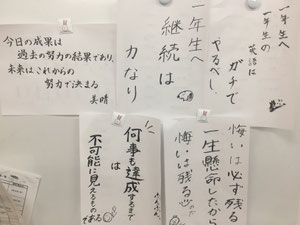 一年生へ
一年生の
英語は
ガチで
やるべし。
一年生へ
継続は
力なり
今日の成果は
過去の努力の結果であり、
未来はこれからの
努力で決まる
美晴
悔いは必ず残る
一生懸命したから
悔いは残るのだ
何事も達成するまで
は
不可能に見えるもの
である